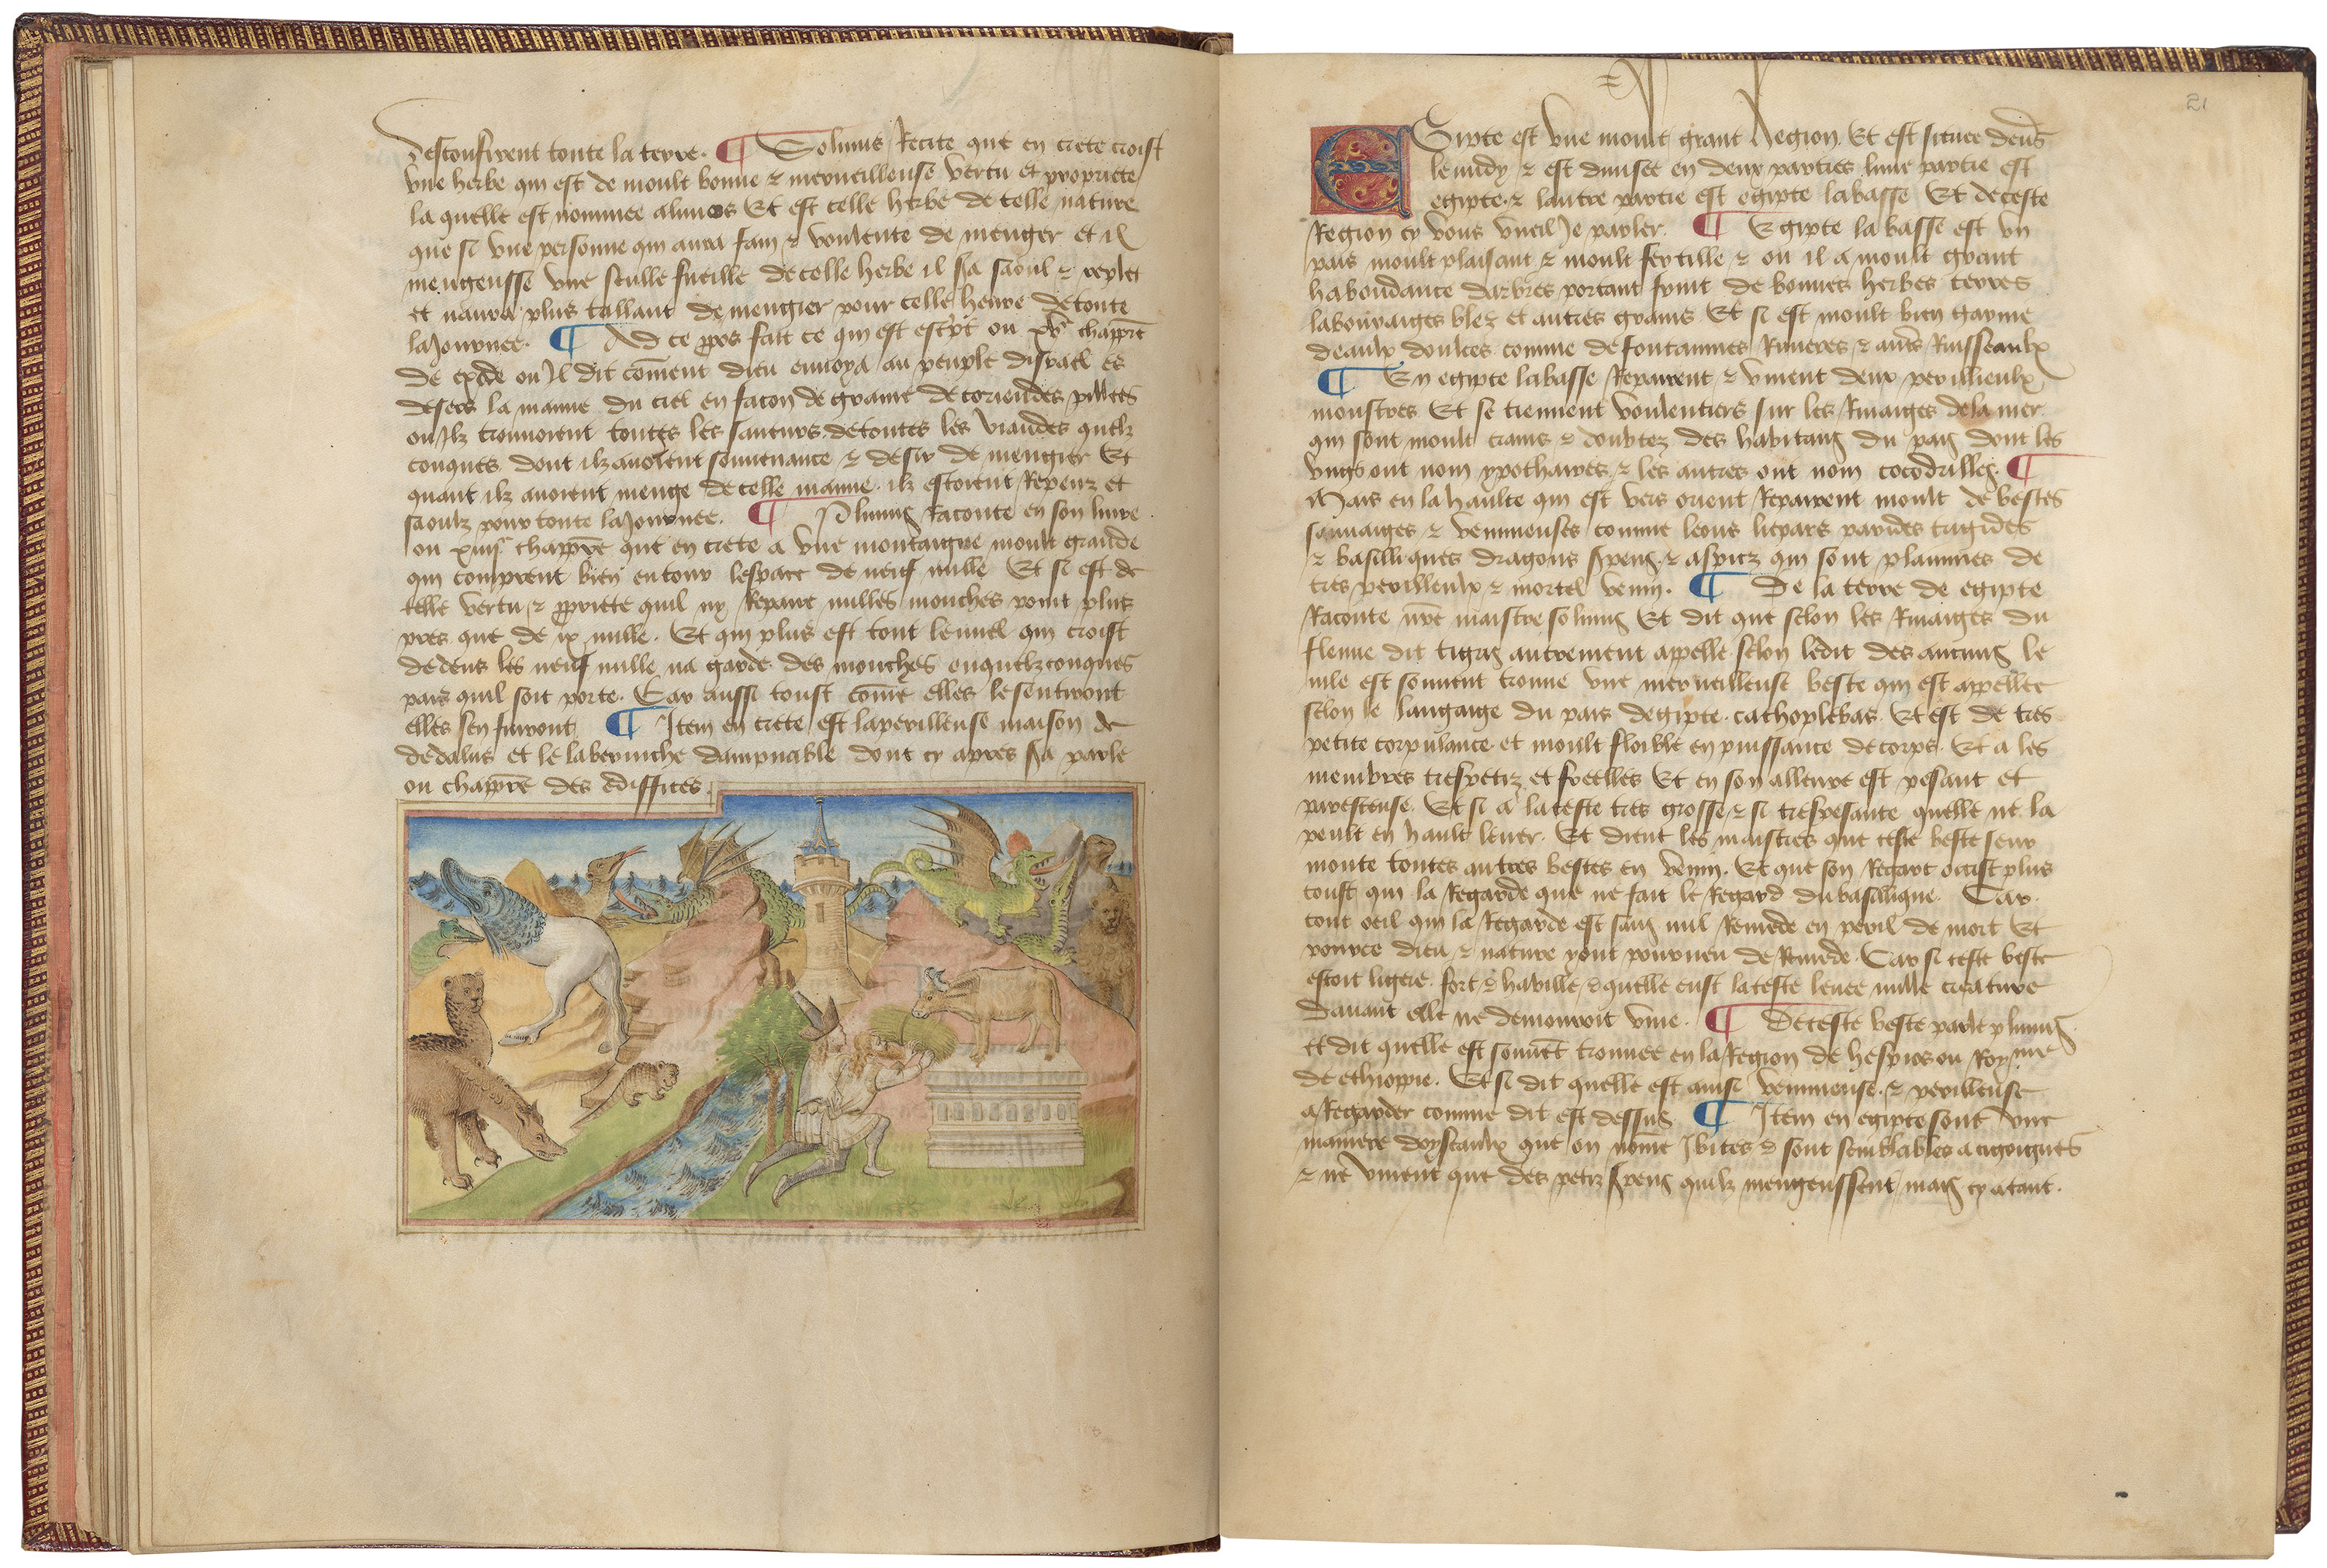 desconfirent toute la terre. ¶ Solinus Recite que en crete croist
vne herbe qui est de moult bonne & merueilleuse vertu et propriete
la quelle est nommee alimos Et est celle herbe de telle nature
que se vne personne qui aura fain & voulente de menger et il
mengeusse vne seulle fueille de celle herbe il sa saoul & replet
et naura plus tallant de mengier pour celle heure de toute
la Journee. ¶ Ad ce ppos fait ce qui est escpt ou xve chappre
de exode ou Il dit coment dieu enuoya au peuple disrael es
desers la manne du ciel en facon de graine de coriendes pillees
ou Ilz trouuoient toutes les saueurs de toutes les viandes quelz
conques dont ilz auoient souuenance & desir de mengier Et
quant ilz auoient menge de celle manne ilz estoient Repeuz et
saoulz pour toute la Journee. ¶ Plinius Raconte en son liure
ou xiiije chappre que en crete a vne montaigne moult grande
qui comprent bien entour lespace de neuf mille Et si est de
telle vertu & ppriete quil ny Repaire nulles mouches point plus
pres que de ix mille. Et qui plus est tout le miel qui croist
dedens les neuf mille na garde des mouches en quelzconques
pais quil soit porte. Car aussi tost come elles le sentiront
elles sen fuiront ¶ Item en crete est la perilleuse maison de
dedalus et le laberinche dampnable dont cy apres sa parle
ou chappre des ediffices.
21
Egipte est vne moult grant Region Et est situee deuers
le midy & est diuisee en deux parties lune partie est
egipte & lautre partie est egipte la basse Et de ceste
Region cy vous vueil Je parler. ¶ Egipte la basse est vn
pais moult plaisant & moult fertille & ou il a moult grant
habondance darbres portant fruit de bonnes herbes terres
labouraiges blez et autres grains Et si est moult bien garnie
deaulx doulces comme de fontainnes Riuieres & aultres Ruisseaulx
¶ En egipte la basse Repairent & viuent deux perillieulx
monstres Et se tiennent voulentiers sur les Riuaiges de la mer
qui sont moult crains & doubtez des habitans du pais dont les
vngs ont nom ypothames & les autres ont nom cocodrilles. ¶
Mais en la haulte qui est vers orient Repairent moult de bestes
sauuaiges & venimeuses comme leons liepars parides trigides
& basilliques dragons spens & aspicz qui sont plainnes de
tres perilleulx & mortel venin. ¶ De la terre de egipte
Raconte nre maistre solinus Et dit que selon les Riuaiges du
fleuue dit tigris autrement appelle selon ledit des aucuns le
nile est souuent trouue vne merueilleuse beste qui est appellee
selon le langaige du pais degipte cathoplebas Et est de tres
petite corpulance et moult floible en puissance de corps. Et a les
membres tres petiz et freelles Et en son alleure est pesant et
paresceuse. Et si a la teste tres grosse & si tres pesante quelle ne la
peult en hault leuer. Et dient les maistres que ceste beste seur
monte toutes autres bestes en venin. Et que son Regart occist plus
toust qui la Regarde que ne fait le Regard du basilique. Car
tout oeil qui la Regarde est sans nul Remede en peril de mort Et
pource dieu & nature y ont pourueu de Remede. Car si ceste beste
estoit ligere fort & habille & quelle eust la teste leuee nulle creature
dauant elle ne demouroit viue. ¶ De ceste beste parle plinius
et dit quelle est souuent trouuee en la Region de hesperos ou Royaume
de ethioppie. Et si dit quelle est ainsi venimeuse & perilleuse
a Regarder comme dit est dessus ¶ Item en egipte sont vne
maniere doyseaulx que on nome Ibites & sont semblables a cigoignes
& ne viuent que des petiz spens quilz mengeussent mais cy atant.